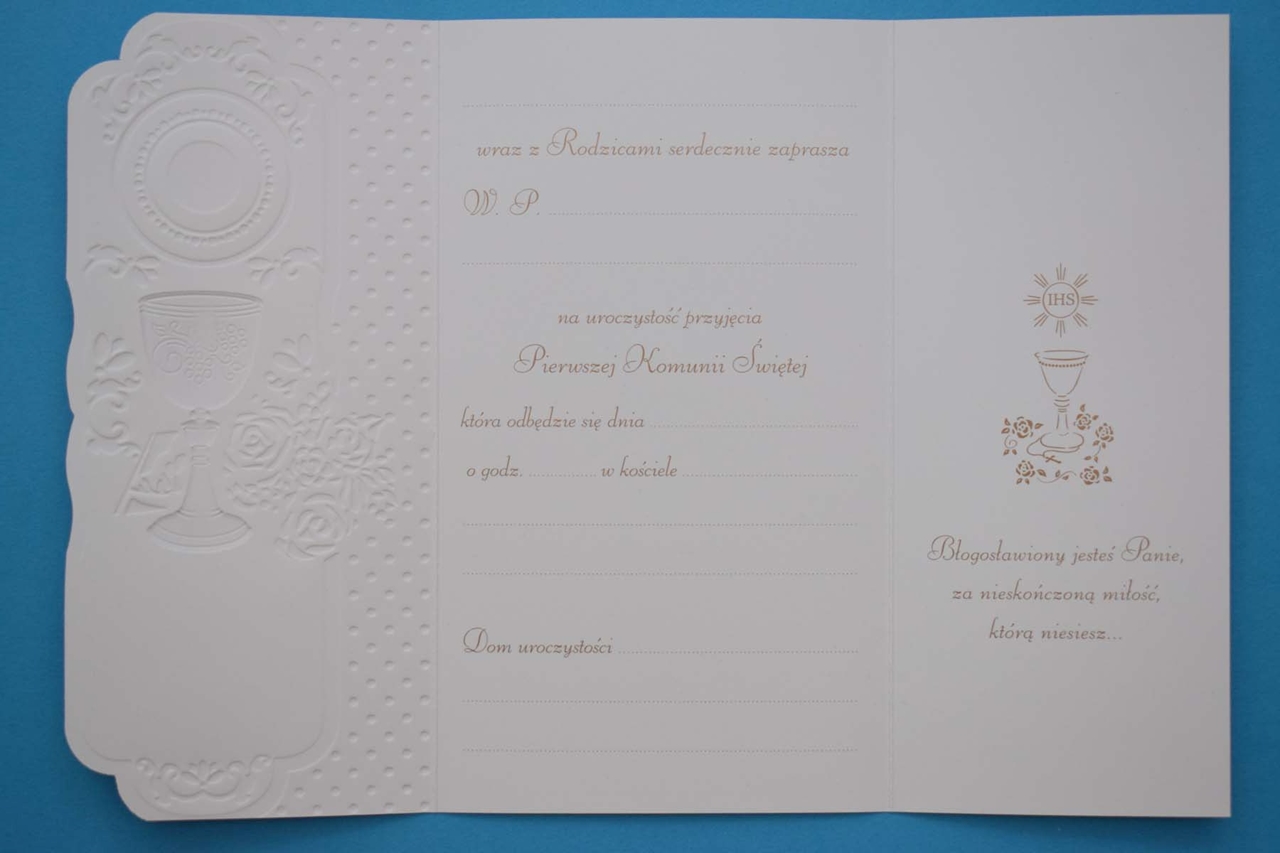 wraz z Rodzicami serdecznie zaprasza
W. P.
na uroczystość przyjęcia
Pierwszej Komunii Świętej
która odbędzie się dnia
o godz. w kościele
Dom uroczystości
IHS
Błogosławiony jesteś Panie,
za nieskończoną miłość,
którą niesiesz...